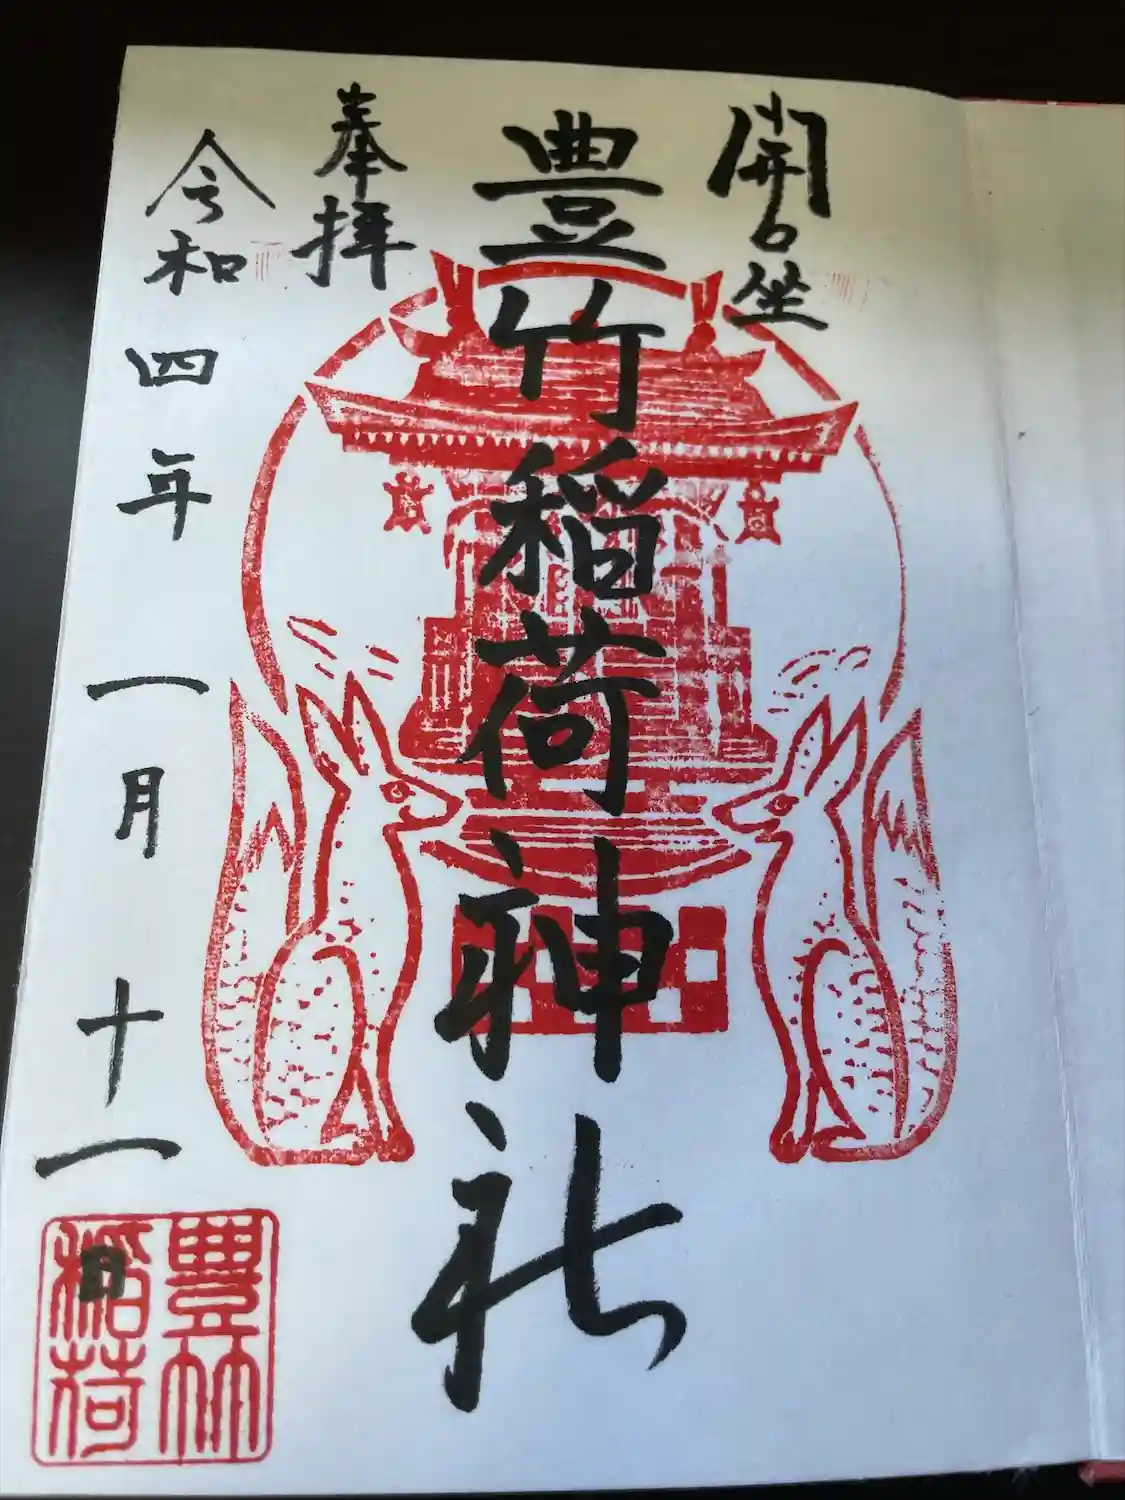 開口坐
豊竹稲荷神社
奉拝
令和四年一月十一日
豊竹
稲荷